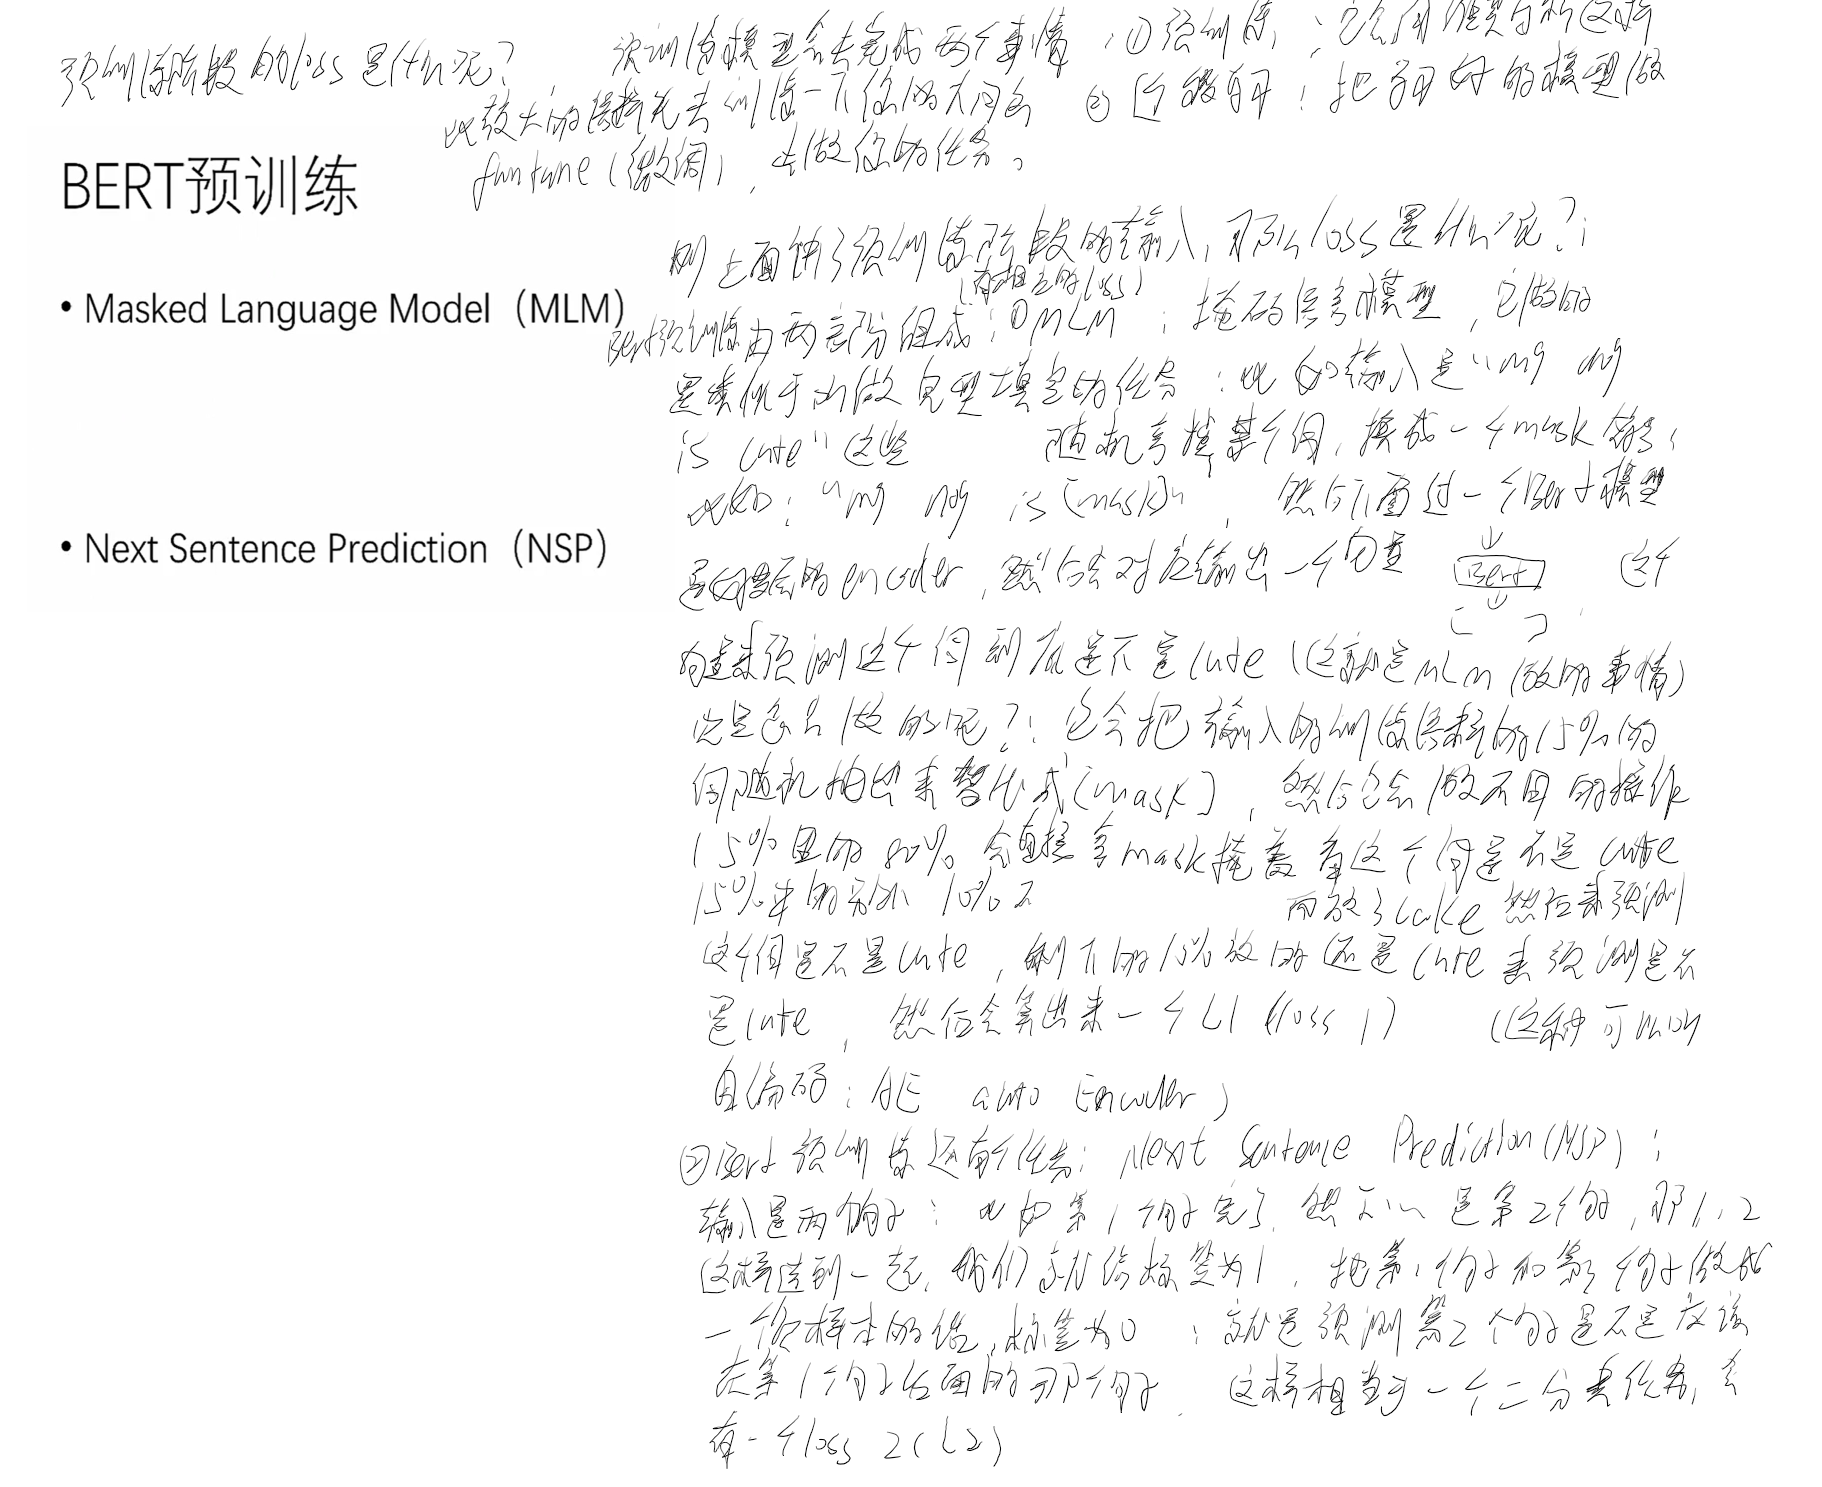 预训练阶段的loss是什么呢?
预训练模型会去完成两个事情:①预训练:它会用
比较大的 先去训练一下你的 ② :把 好的模型做
funtune(微调),去做你的任务。
BERT预训练
刚上面 了预训练阶段的输入,那么loss是什么呢?:
(有相应的loss)
• Masked Language Model(MLM)
Bert预训练由两部分组成:①MLM:掩码语言模型,它做的
是类似于 做完型填空的任务:比如输入是"my dog
is cute"这些 随机 掉某个词,换成一个mask 符号,
比如:"my dog is [mask]",然后下面过一个Bert模型
• Next Sentence Prediction(NSP)
是 的encoder,然后会对应输出一个向量 Bert 这个
向量来预测这个词到底是不是cute(这就是MLM做的事情)
它是怎么做的呢?:它会把输入的训练语料的15%的
词随机抽出来替代成[mask],然后它会做不同的操作
15%里的80%。会直接拿mask掩盖 看这个词是不是cute
15%里的另外10%不 而放了cake 然后来预测
这个词是不是cute,剩下的10%放的还是cute来预测是不
是cute,然后会算出来一个L1(loss 1) (这种可以叫
自编码:AE auto Encoder)
②Bert预训练还有个任务:Next Sentence Prediction(NSP):
输入是两个句子:比如第1个句子完了,然后 是第2个句,那1、2
这样连到一起,我们就给标签为1,把第1个句子和第3个句子做成
一个样本的话,标签为0:就是预测第2个句子是不是应该
在第1个句子后面的那个句子,这样相当于一个二分类任务,会
有一个loss 2(L2)